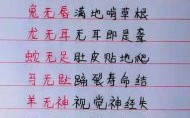 兔无唇满地啃草根
龙无耳无耳即是聋
蛇无足肚皮贴地爬
马无趾蹄裂寿命结
羊无神视觉神经失